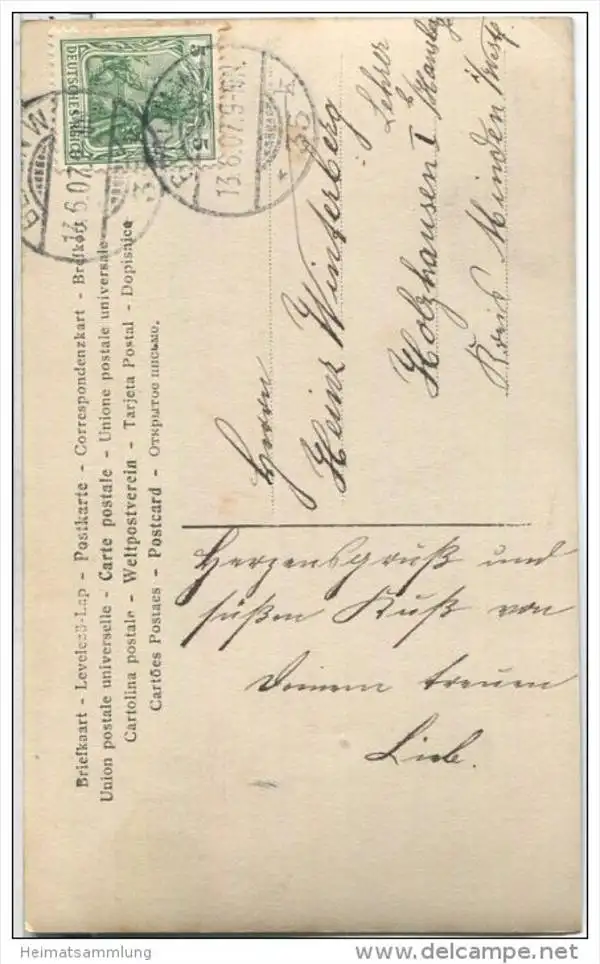 DEUTSCHES REICH
5
5
BERLIN W
13.6.07.9-10N.
* 35 k
Briefkaart - Levelező-Lap - Postkarte - Correspondenzkart - Brefkort
Union postale universelle - Carte postale - Unione postale universale
Cartolina postale - Weltpostverein - Tarjeta Postal - Dopisnice
Cartões Postaes - Postcard - Открытое письмо.
Herrn
Heinz Winterberg
Lehrer
Holzhausen I
Kreis Minden
Herzensgruß und
süßen Kuß von
Deinem treuen
Lieb.
Heimatsammlung
www.delcampe.net